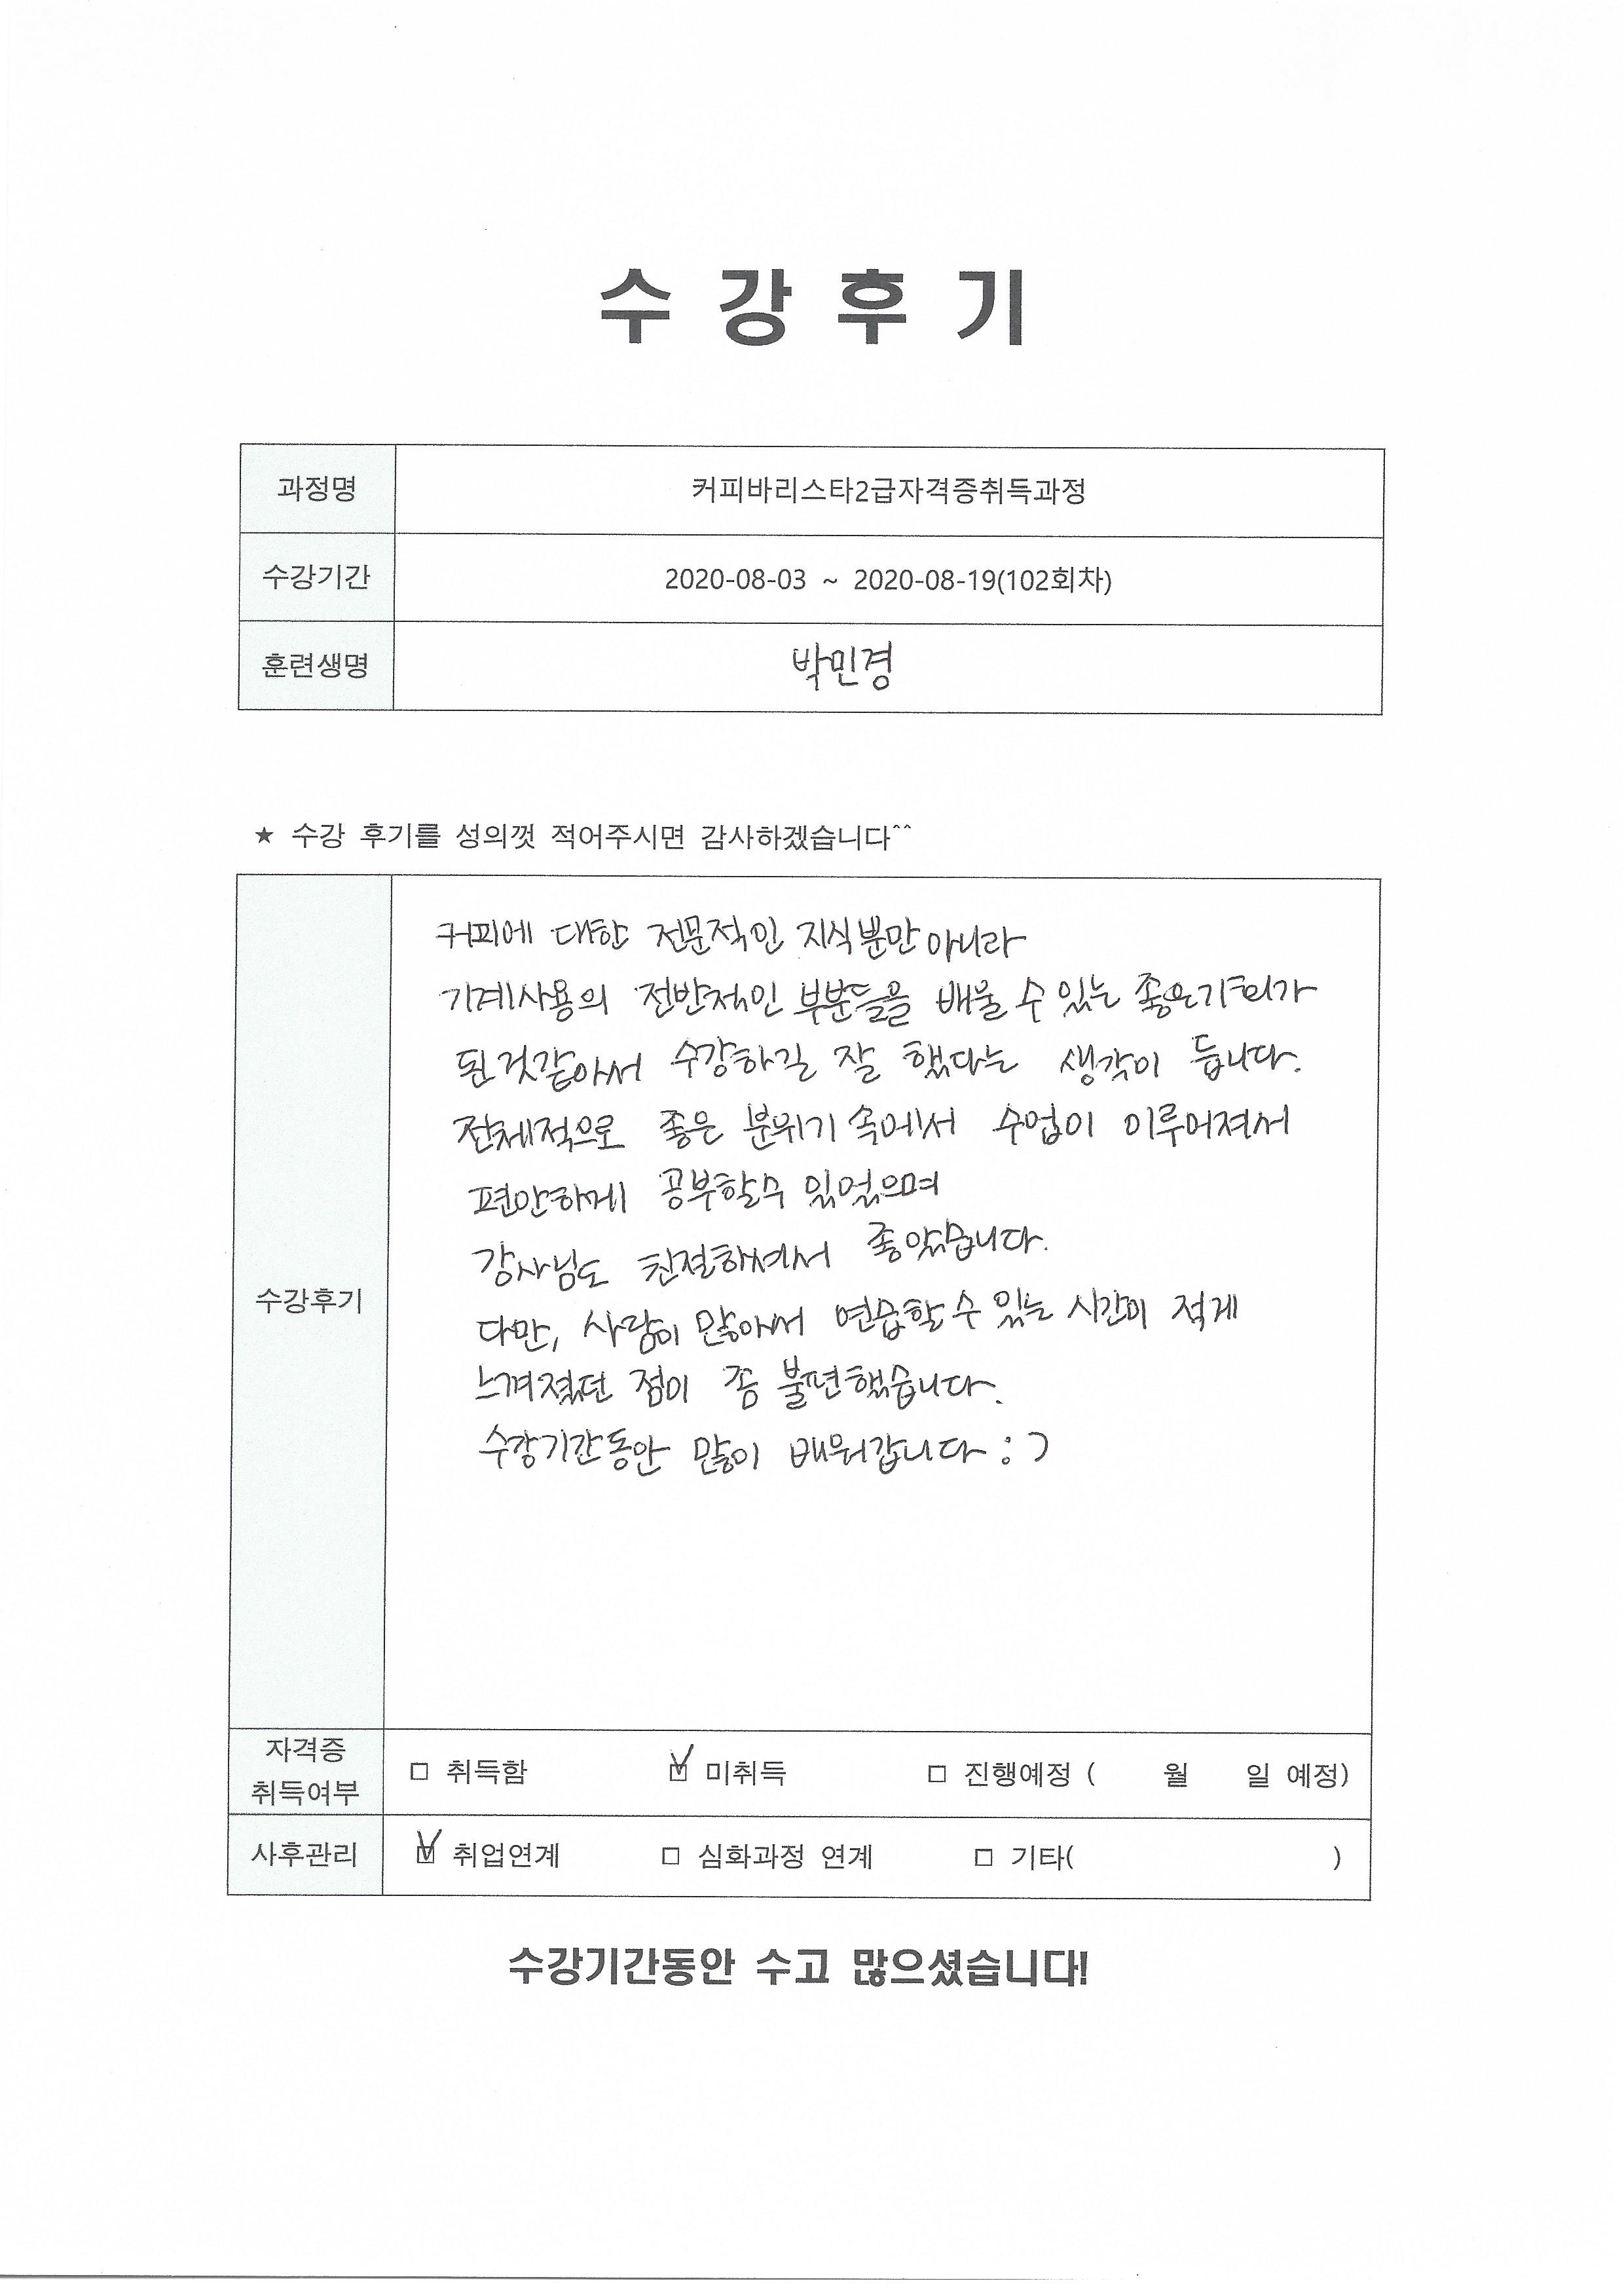 수 강 후 기
과정명 커피바리스타2급자격증취득과정
수강기간 2020-08-03 ~ 2020-08-19(102회차)
훈련생명 박민경
★ 수강 후기를 성의껏 적어주시면 감사하겠습니다^^
커피에 대한 전문적인 지식뿐만 아니라
기계사용의 전반적인 부분들을 배울 수 있는 좋은기회가
된것같아서 수강하길 잘 했다는 생각이 듭니다.
전체적으로 좋은 분위기 속에서 수업이 이루어져서
편안하게 공부할수 있었으며
강사님도 친절하셔서 좋았습니다.
다만, 사람이 많아서 연습할 수 있는 시간이 적게
느껴졌던 점이 좀 불편했습니다.
수강기간동안 많이 배워갑니다 : )
수강후기
자격증
취득여부 □ 취득함 ☑ 미취득 □ 진행예정 ( 월 일 예정)
사후관리 ☑ 취업연계 □ 심화과정 연계 □ 기타( )
수강기간동안 수고 많으셨습니다!